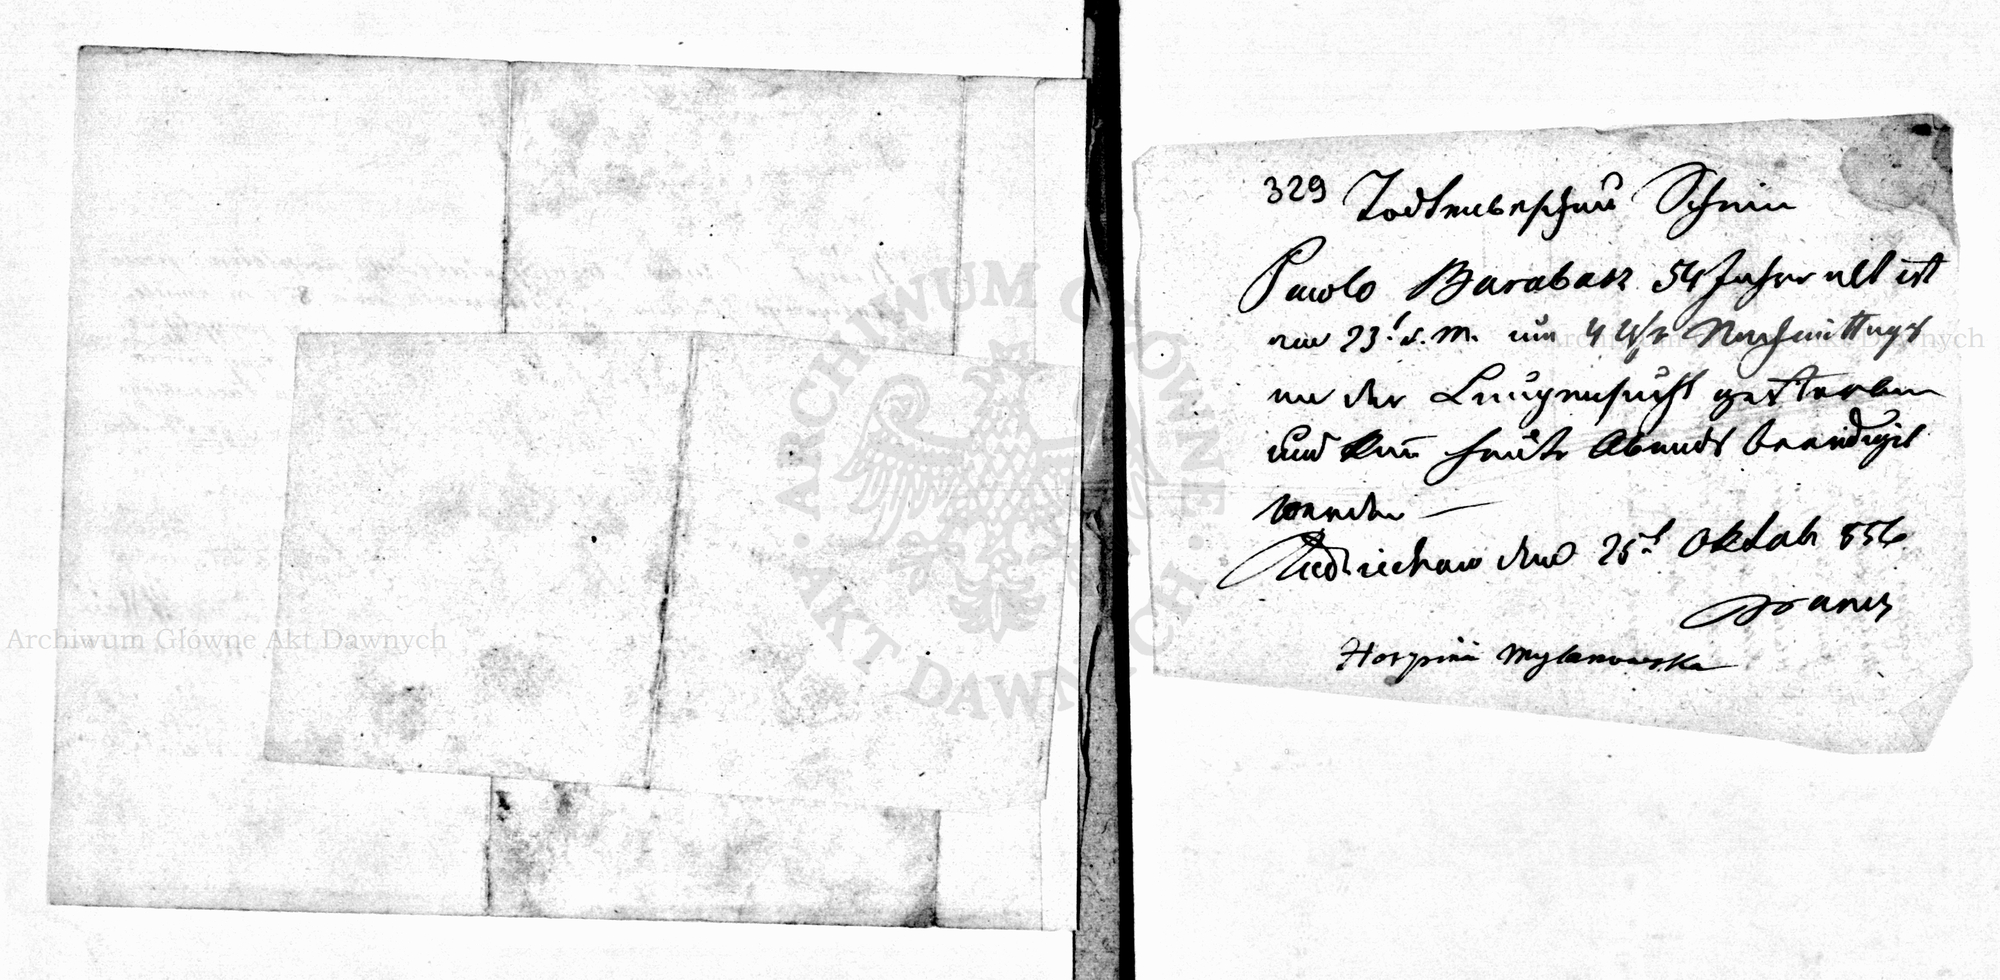 329 Todtenbeschau Schein
Pawlo Barabasz 54 Jahre alt ist
am 23t d. M. um 4 Uhr Nachmittags
an der Lungensucht gestorben
und kann heute Abends beerdigt
werden —
den 25t Oktob 856
Horpina
ARCHIWUM GŁÓWNE AKT DAWNYCH
Archiwum Główne Akt Dawnych
Archiwum Główne Akt Dawnych